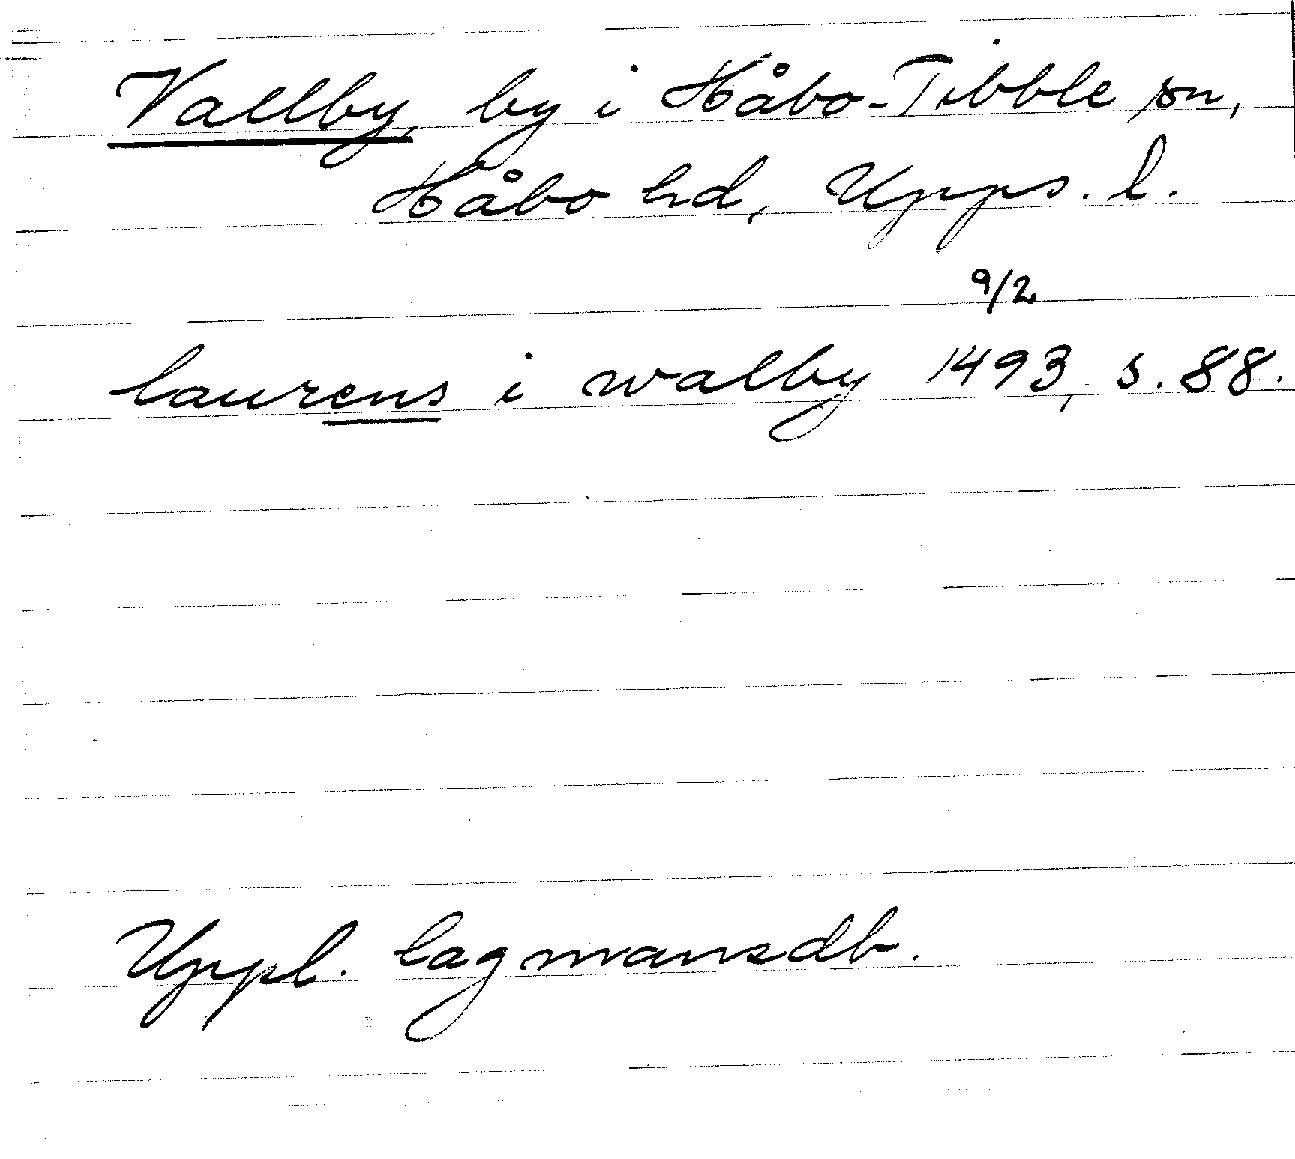 Vallby, by i Håbo-Tibble sn,
Håbo hd, Upps. l.
9/2
laurens i walby 1493, s. 88.
Uppl. lagmansdb.